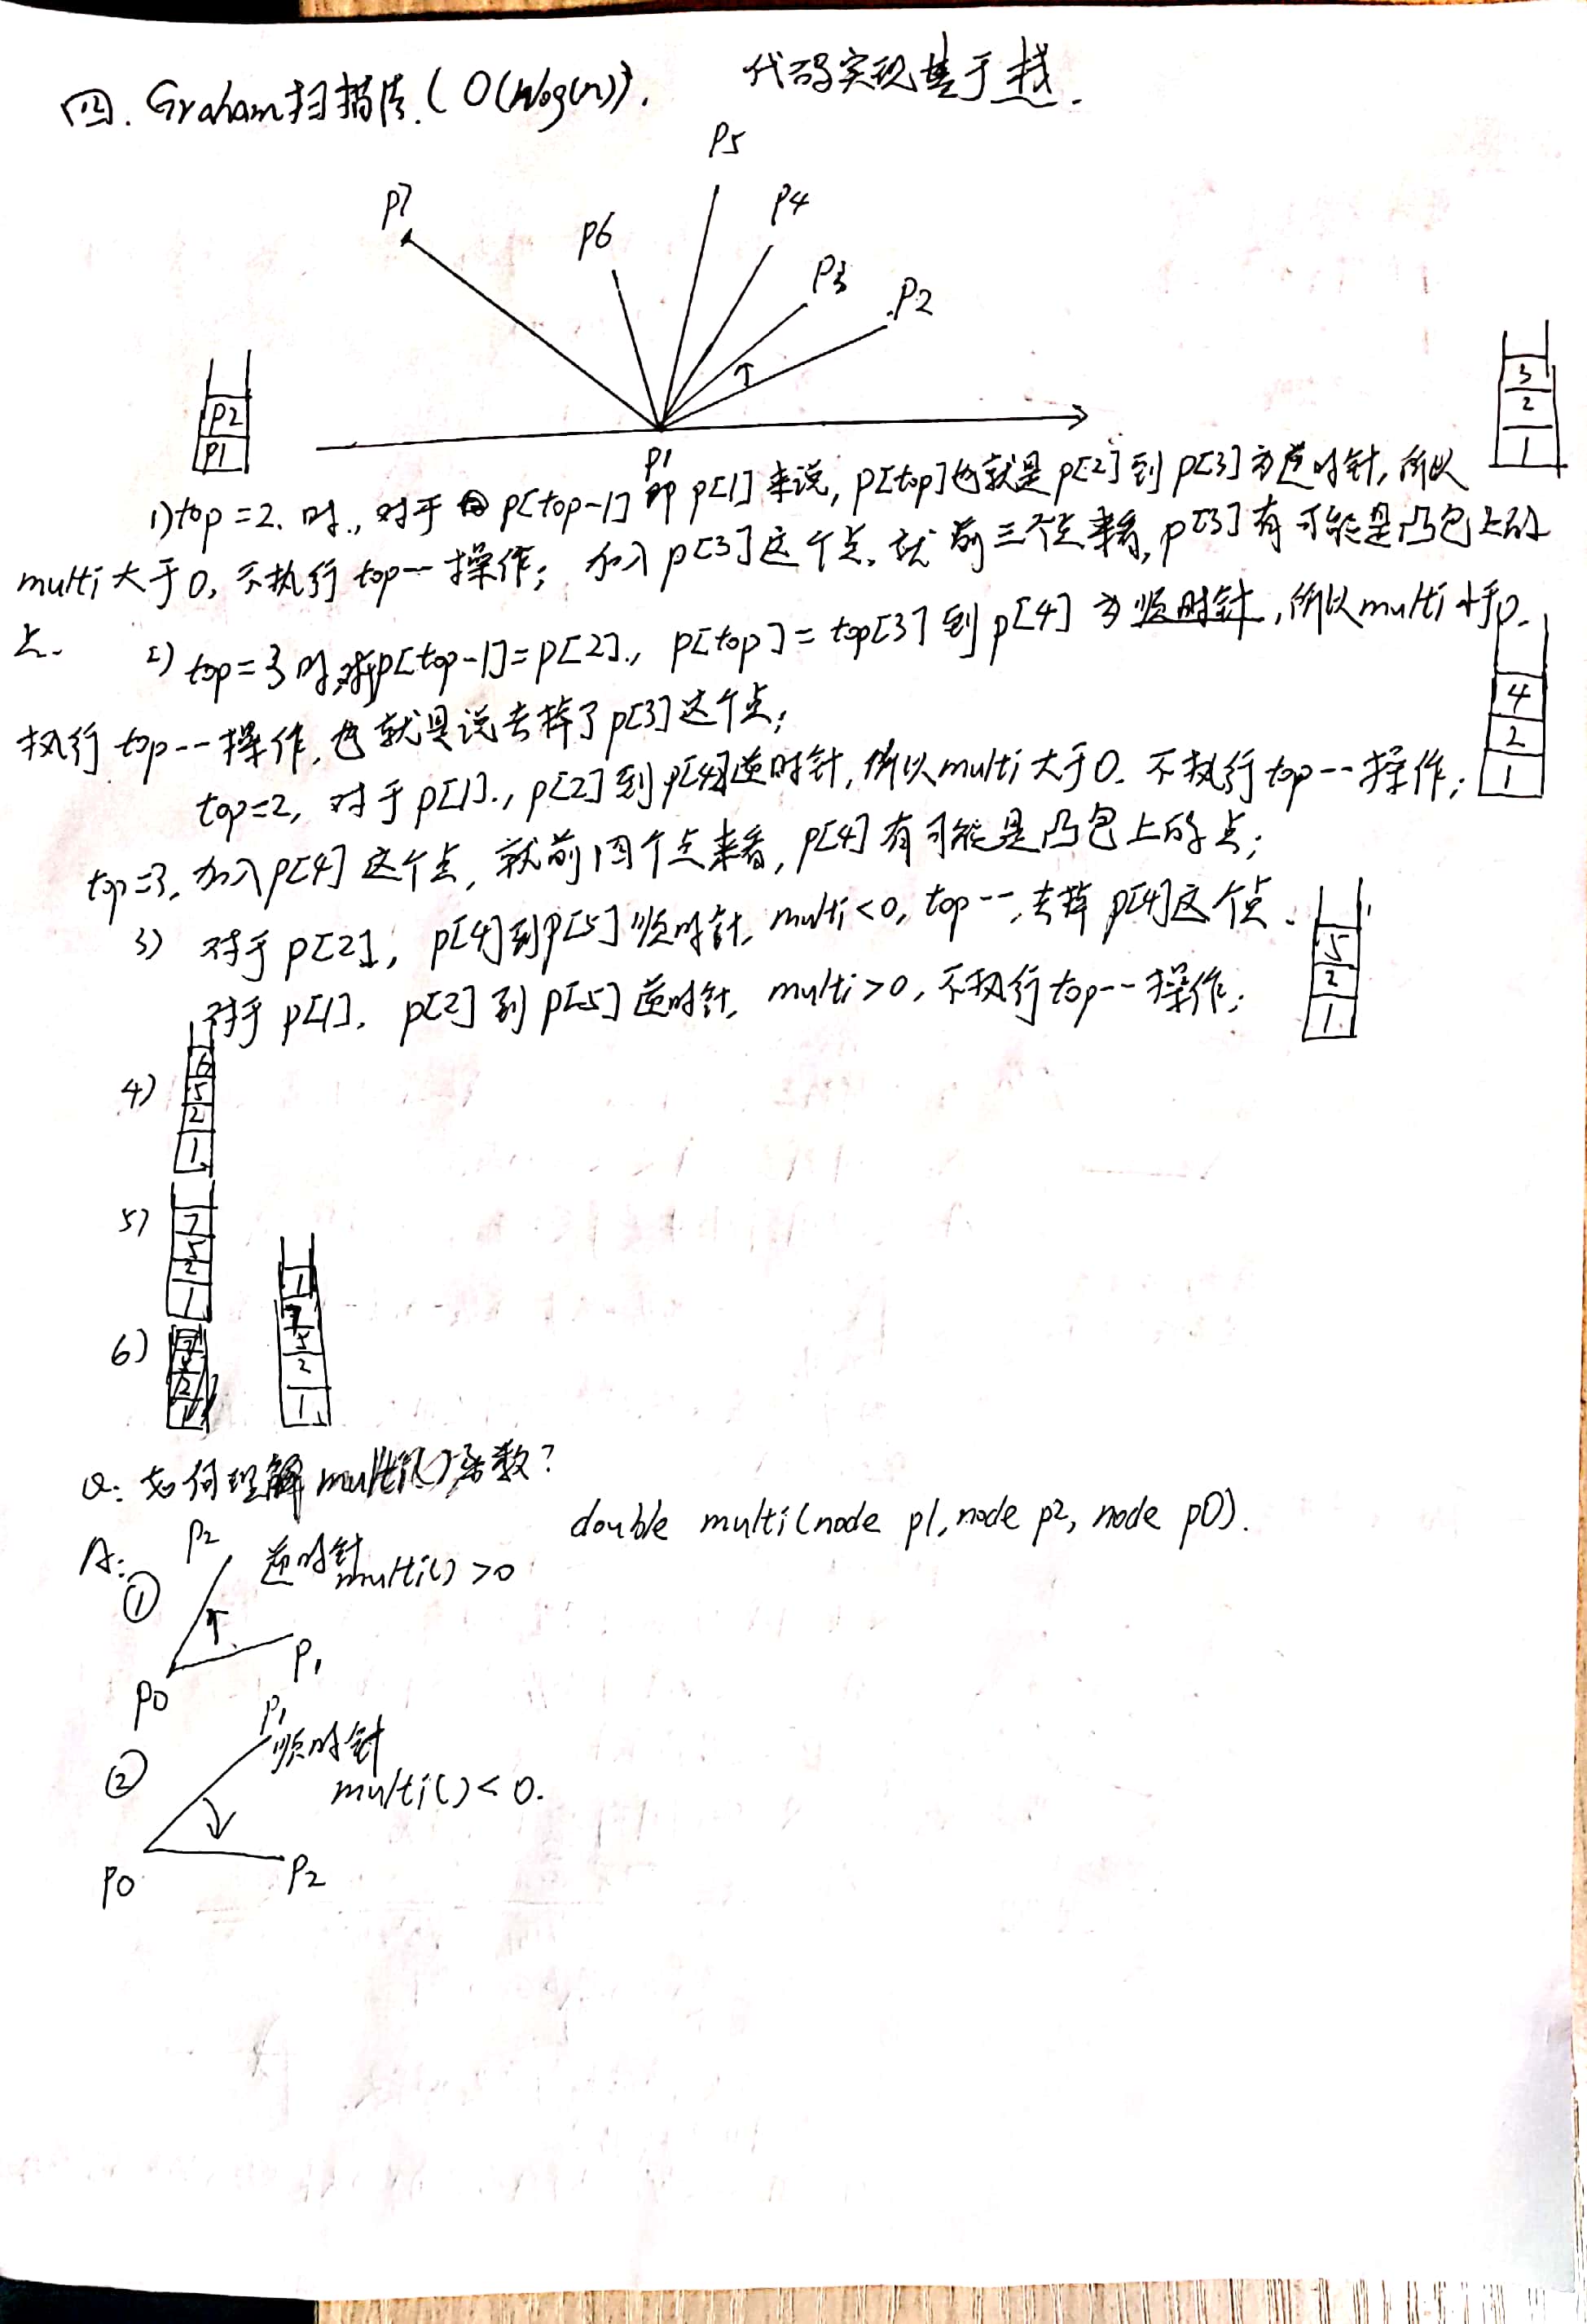 四. Graham扫描法.(O(nlog(n)). 代码实现基于栈.
P5
P7
P4
P6
P3
P2
P2
P1
P1
3
2
1
1) top=2. 时., 对于 p[top-1] 即 p[1] 来说, p[top]也就是p[2]到p[3]为逆时针,所以
multi大于0, 不执行top--操作; 加入p[3]这个点. 就前三个点来看, p[3]有可能是凸包上的
点.
2) top=3时,对于p[top-1]=p[2]., p[top]=top[3]到p[4]为顺时针,所以multi小于0.
执行top--操作,也就是说去掉了p[3]这个点;
top=2, 对于p[1]., p[2]到p[4]逆时针,所以multi大于0. 不执行top--操作;
4
2
1
top=3, 加入p[4]这个点, 就前四个点来看, p[4]有可能是凸包上的点;
3) 对于p[2], p[4]到p[5]顺时针, multi<0, top--, 去掉p[4]这个点.
对于p[1]. p[2]到p[5]逆时针, multi>0, 不执行top--操作;
5
2
1
4)
6
5
2
1
5)
7
5
2
1
6)
1
7
5
2
1
Q: 如何理解multi()函数?
double multi(node p1, node p2, node p0).
A:
① P2 逆时针
multi()>0
P1
P0
② P1 顺时针
multi()<0.
P0 P2